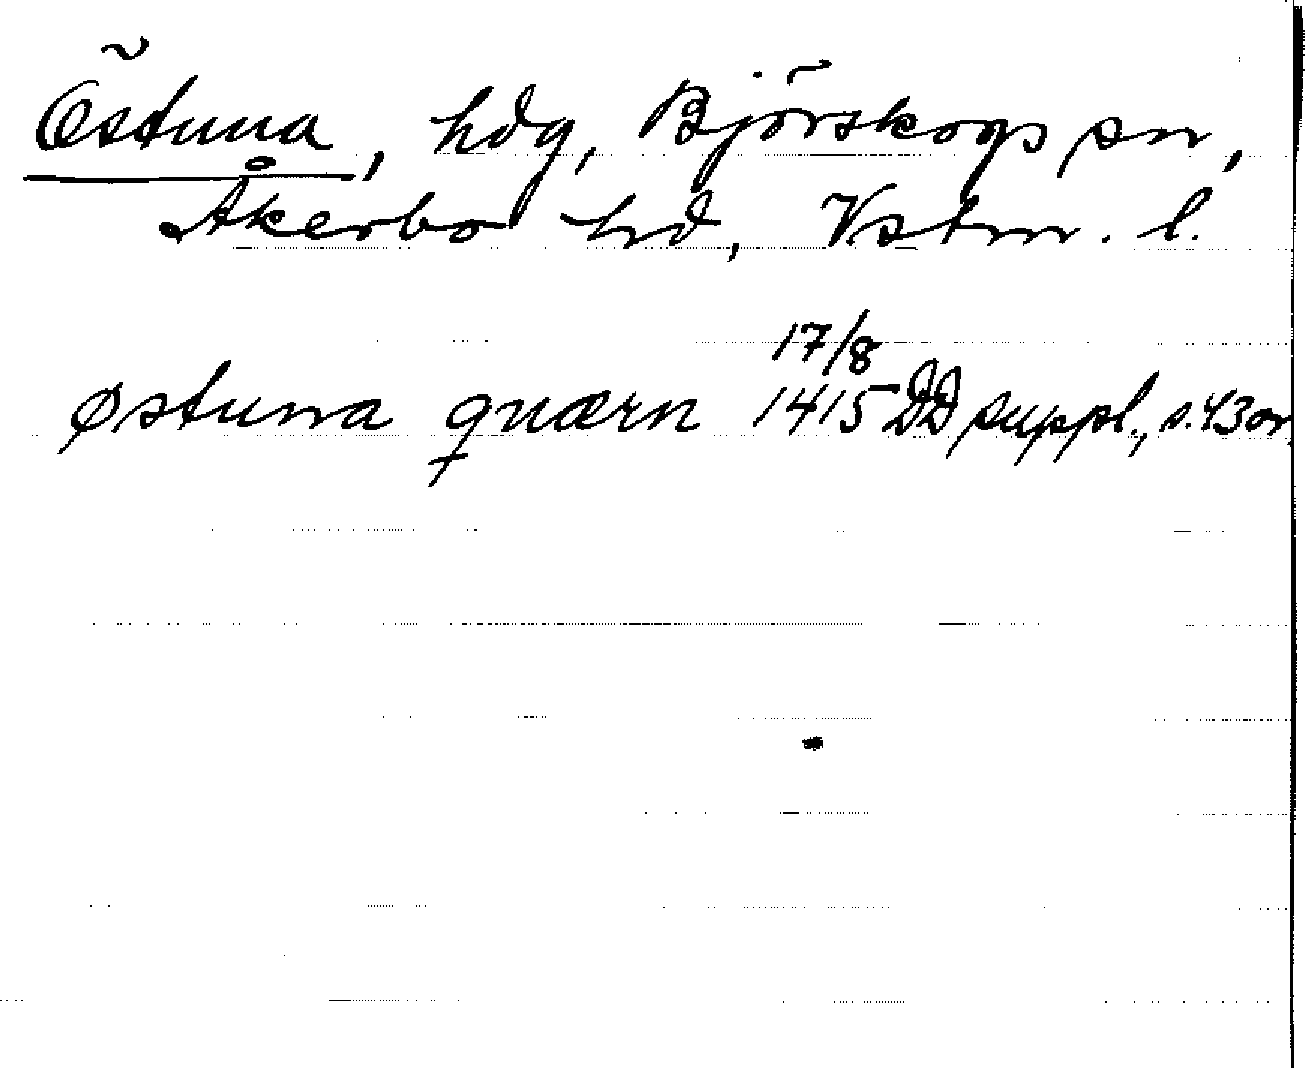 Östuna, hdg, Björskogs sn,
Åkerbo hd, Vstm. l.
17/8
Østuna quærn 1415 DD suppl., s. 43 or